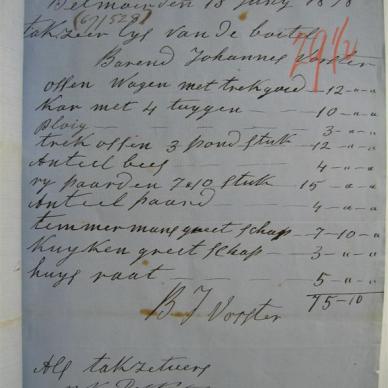 Belmoinden 18 Juny 1878
(6/1528)
takzeer lys van de boedel
79 1/2
Barend Johannes Vorster
ossen Wagen met trekgoed - 12 - " - "
Kar met 4 tuygen - 10 - " - "
Ploig - 3 - " - "
trek ossen 3 pond stuk - 12 - " - "
Anteel bees - 4 - " - "
ry paarden 7 & 10 stuk 15 - " - "
Anteel paard - 4 - " - "
temmermans greet schap - 7 - 10 - "
Kuyken greet schap - 3 - " - "
huys raat - 5 - " - "
75 - 10
B J Vorster
Als takzetuers